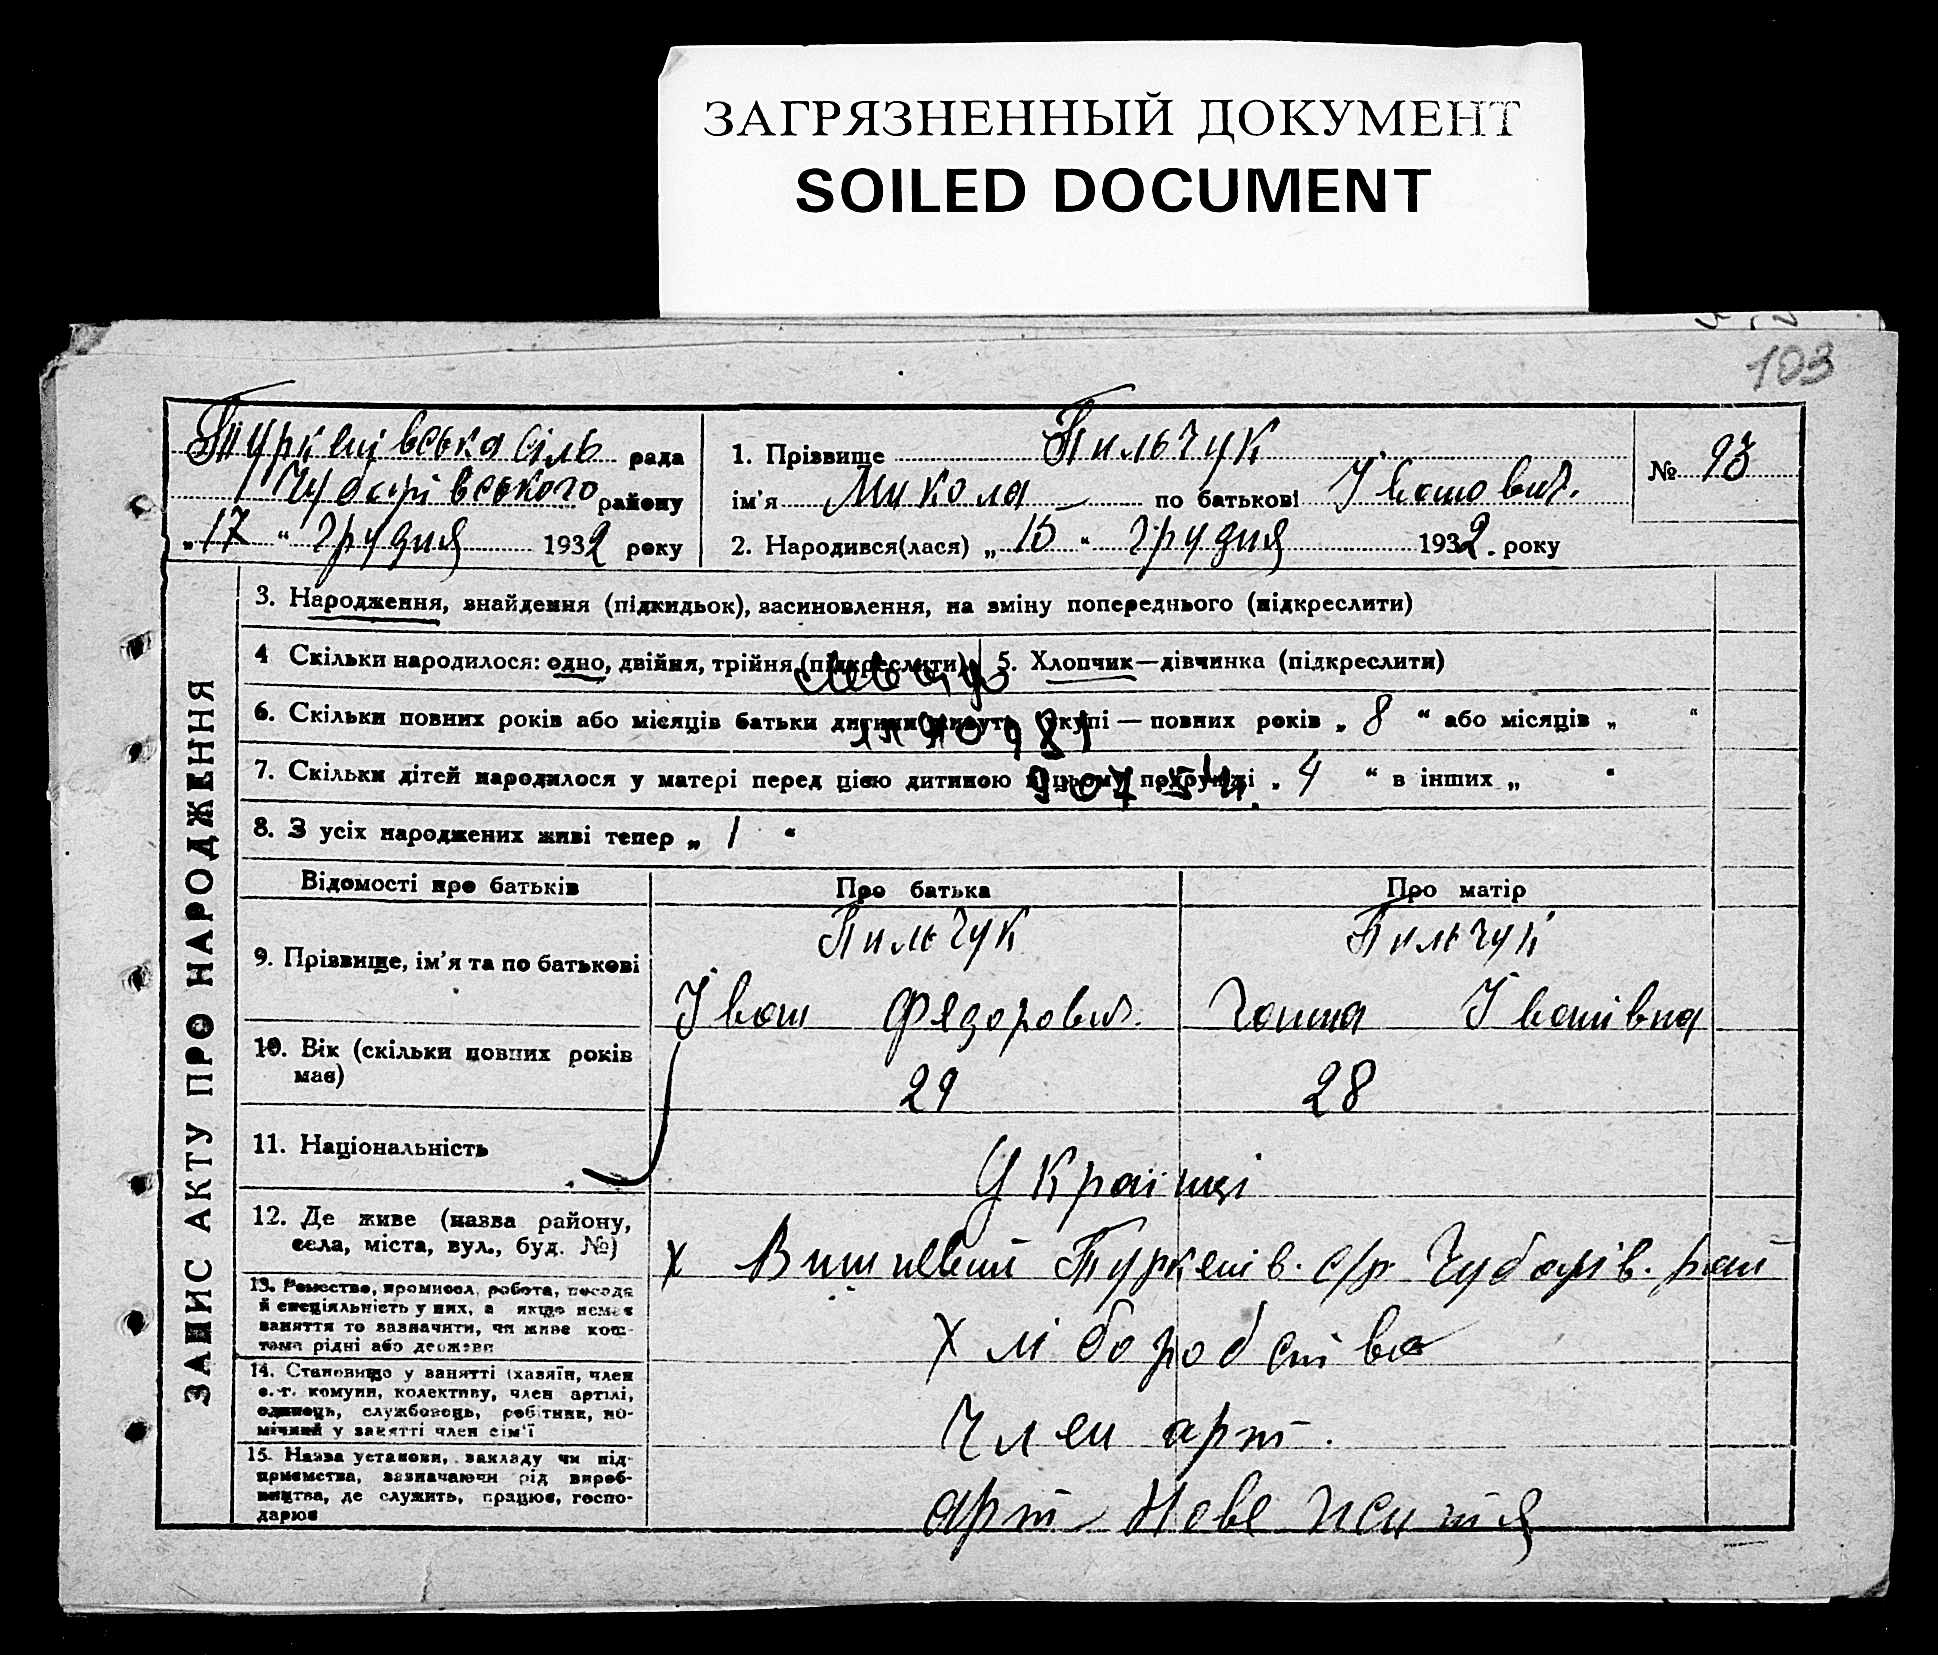 ЗАГРЯЗНЕННЫЙ ДОКУМЕНТ
SOILED DOCUMENT
103
Туркенівська сіль рада
Чубарівського району
„17“ грудня 1932 року
1. Прізвище Пильчук
ім'я Микола по батькові Іванович.
№ 93
2. Народився(лася) „15“ грудня 1932. року
ЗАПИС АКТУ ПРО НАРОДЖЕННЯ
3. Народження, знайдення (підкидьок), засиновлення, на зміну попереднього (підкреслити)
4 Скільки народилося: одно, двійня, трійня (підкреслити) 5. Хлопчик—дівчинка (підкреслити)
6. Скільки повних років або місяців батьки дитини живуть укупі — повних років „ 8 “ або місяців „ “
7. Скільки дітей народилося у матері перед цією дитиною в цьому подружжі „ 4 “ в інших „ “
8. З усіх народжених живі тепер „ 1 “
Відомості про батьків Про батька Про матір
9. Прізвище, ім'я та по батькові
Пильчук Пильчук
Іван Фядорович. Ганна Іванівна
10. Вік (скільки повних років має)
29 28
11. Національність
Українці
12. Де живе (назва району,
села, міста, вул., буд. №)
х Вишневий Туркенів. с/р. Чубарів. рай
13. Ремество, промисел, робота, посада
й спеціяльність у них, а якщо немає
заняття то зазначити, чи живе кош-
тами рідні або держави
Хліборобство
14. Становище у занятті (хазяїн, член
с.-г. комуни, колективу, член артілі,
одинець, службовець, робітник, по-
мічний у занятті член сім'ї
Член арт.
15. Назва установи, закладу чи під-
приємства, зазначаючи рід вироб-
ництва, де служить, працює, госпо-
дарює
арт Нове життя